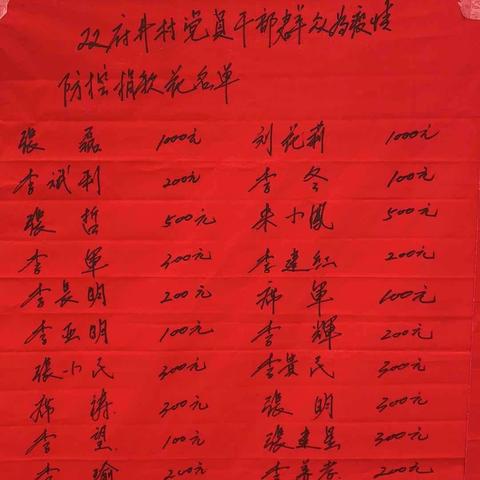 双府井村党员干部群众为疫情
防控捐款花名单
張磊 1000元 刘花莉 1000元
李斌利 200元 李冬 100元
張哲 500元 来小凤 500元
李軍 300元 李建红 200元
李長明 200元 軍 100元
李亚明 100元 李輝 200元
張小民 300元 李貴民 300元
涛 300元 張明 300元
李望 100元 張建星 300元
李瑜 200元 李養孝 200元